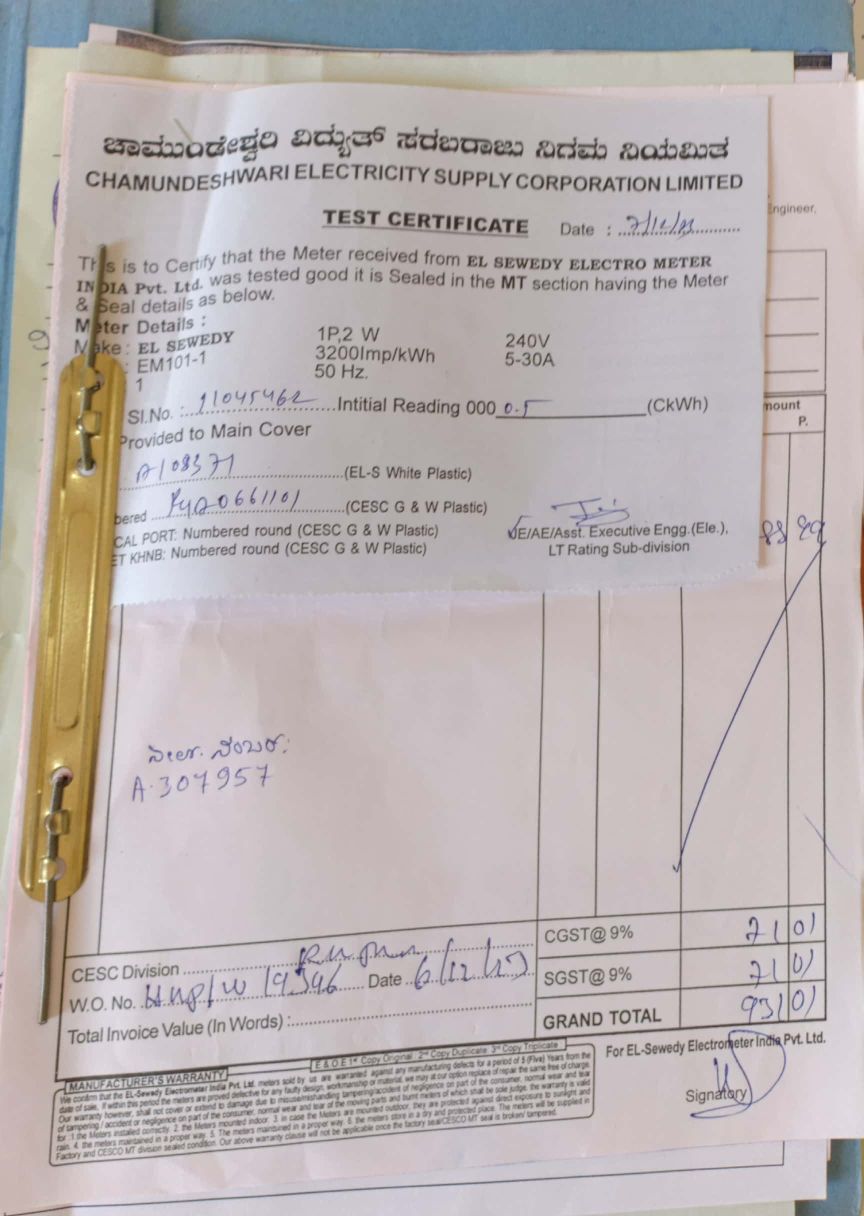 ಚಾಮುಂಡೇಶ್ವರಿ ವಿದ್ಯುತ್ ಸರಬರಾಜು ನಿಗಮ ನಿಯಮಿತ
CHAMUNDESHWARI ELECTRICITY SUPPLY CORPORATION LIMITED
Engineer,
TEST CERTIFICATE Date :
This is to Certify that the Meter received from EL SEWEDY ELECTRO METER
INDIA Pvt. Ltd. was tested good it is Sealed in the MT section having the Meter
& Seal details as below.
Meter Details :
Make : EL SEWEDY 1P,2 W 240V
: EM101-1 3200Imp/kWh 5-30A
1 50 Hz.
Sl.No. : 11045462 Intitial Reading 000 0.5 (CkWh)
mount
P.
Provided to Main Cover
A108371 (EL-S White Plastic)
bered (CESC G & W Plastic)
CAL PORT: Numbered round (CESC G & W Plastic) JE/AE/Asst. Executive Engg.(Ele.),
ET KHNB: Numbered round (CESC G & W Plastic) LT Rating Sub-division
ನಂಬರ:
A.307957
CGST@ 9% 71 01
CESC Division
SGST@ 9% 71 01
W.O. No. Date
GRAND TOTAL 931 01
Total Invoice Value (In Words) :
E & O E 1st Copy Original : 2nd Copy Duplicate 3rd Copy Triplicate
For EL-Sewedy Electrometer India Pvt. Ltd.
MANUFACTURER'S WARRANTY
We confirm that the EL-Sewedy Electrometer India Pvt. Ltd. meters sold by us are warranted against any manufacturing defects for a period of 5 (Five) Years from the
date of sale. If within this period the meters are proved defective for any faulty design, workmanship or material, we may at our option replace of repair the same free of charge.
Our warranty however, shall not cover or extend to damage due to misuse/mishandling tampering/accident of negligence on part of the consumer, normal wear and tear
of tampering / accident or negligence on part of the consumer, normal wear and tear of the moving parts and burnt meters of which shall be sole judge. the warranty is valid
for : 1.the Meters installed correctly. 2. the Meters mounted indoor. 3. in case the Meters are mounted outdoor, they are protected against direct exposure to sunlight and
rain. 4. the meters maintained in a proper way. 5. The meters maintained in a proper way. 6. the meters store in a dry and protected place. The meters will be supplied in
Factory and CESCO MT division sealed condition. Our above warranty clause will not be applicable once the factory seal/CESCO MT seal is broken/ tampered.
Signatory